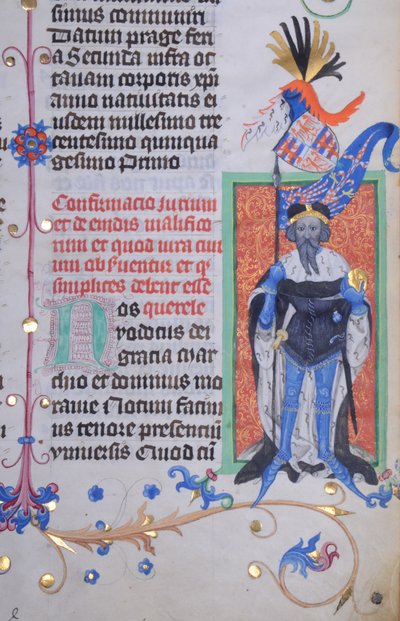 simus communiri
Datum prage feri
a Secunda infra oc
tauam corporis xpi
anno natiuitatis ei
usdem millesimo tre
centesimo quinqua
gesimo Primo
Confirmacio iurium
et de emdis malifico
rum et quod iura ciui
um obseruentur et
simplices debent esse
Nos querele
Jodocus dei
gracia mar
chio et dominus mo
rauie Notum facim
us tenore presencium
vniuersis Quod cu